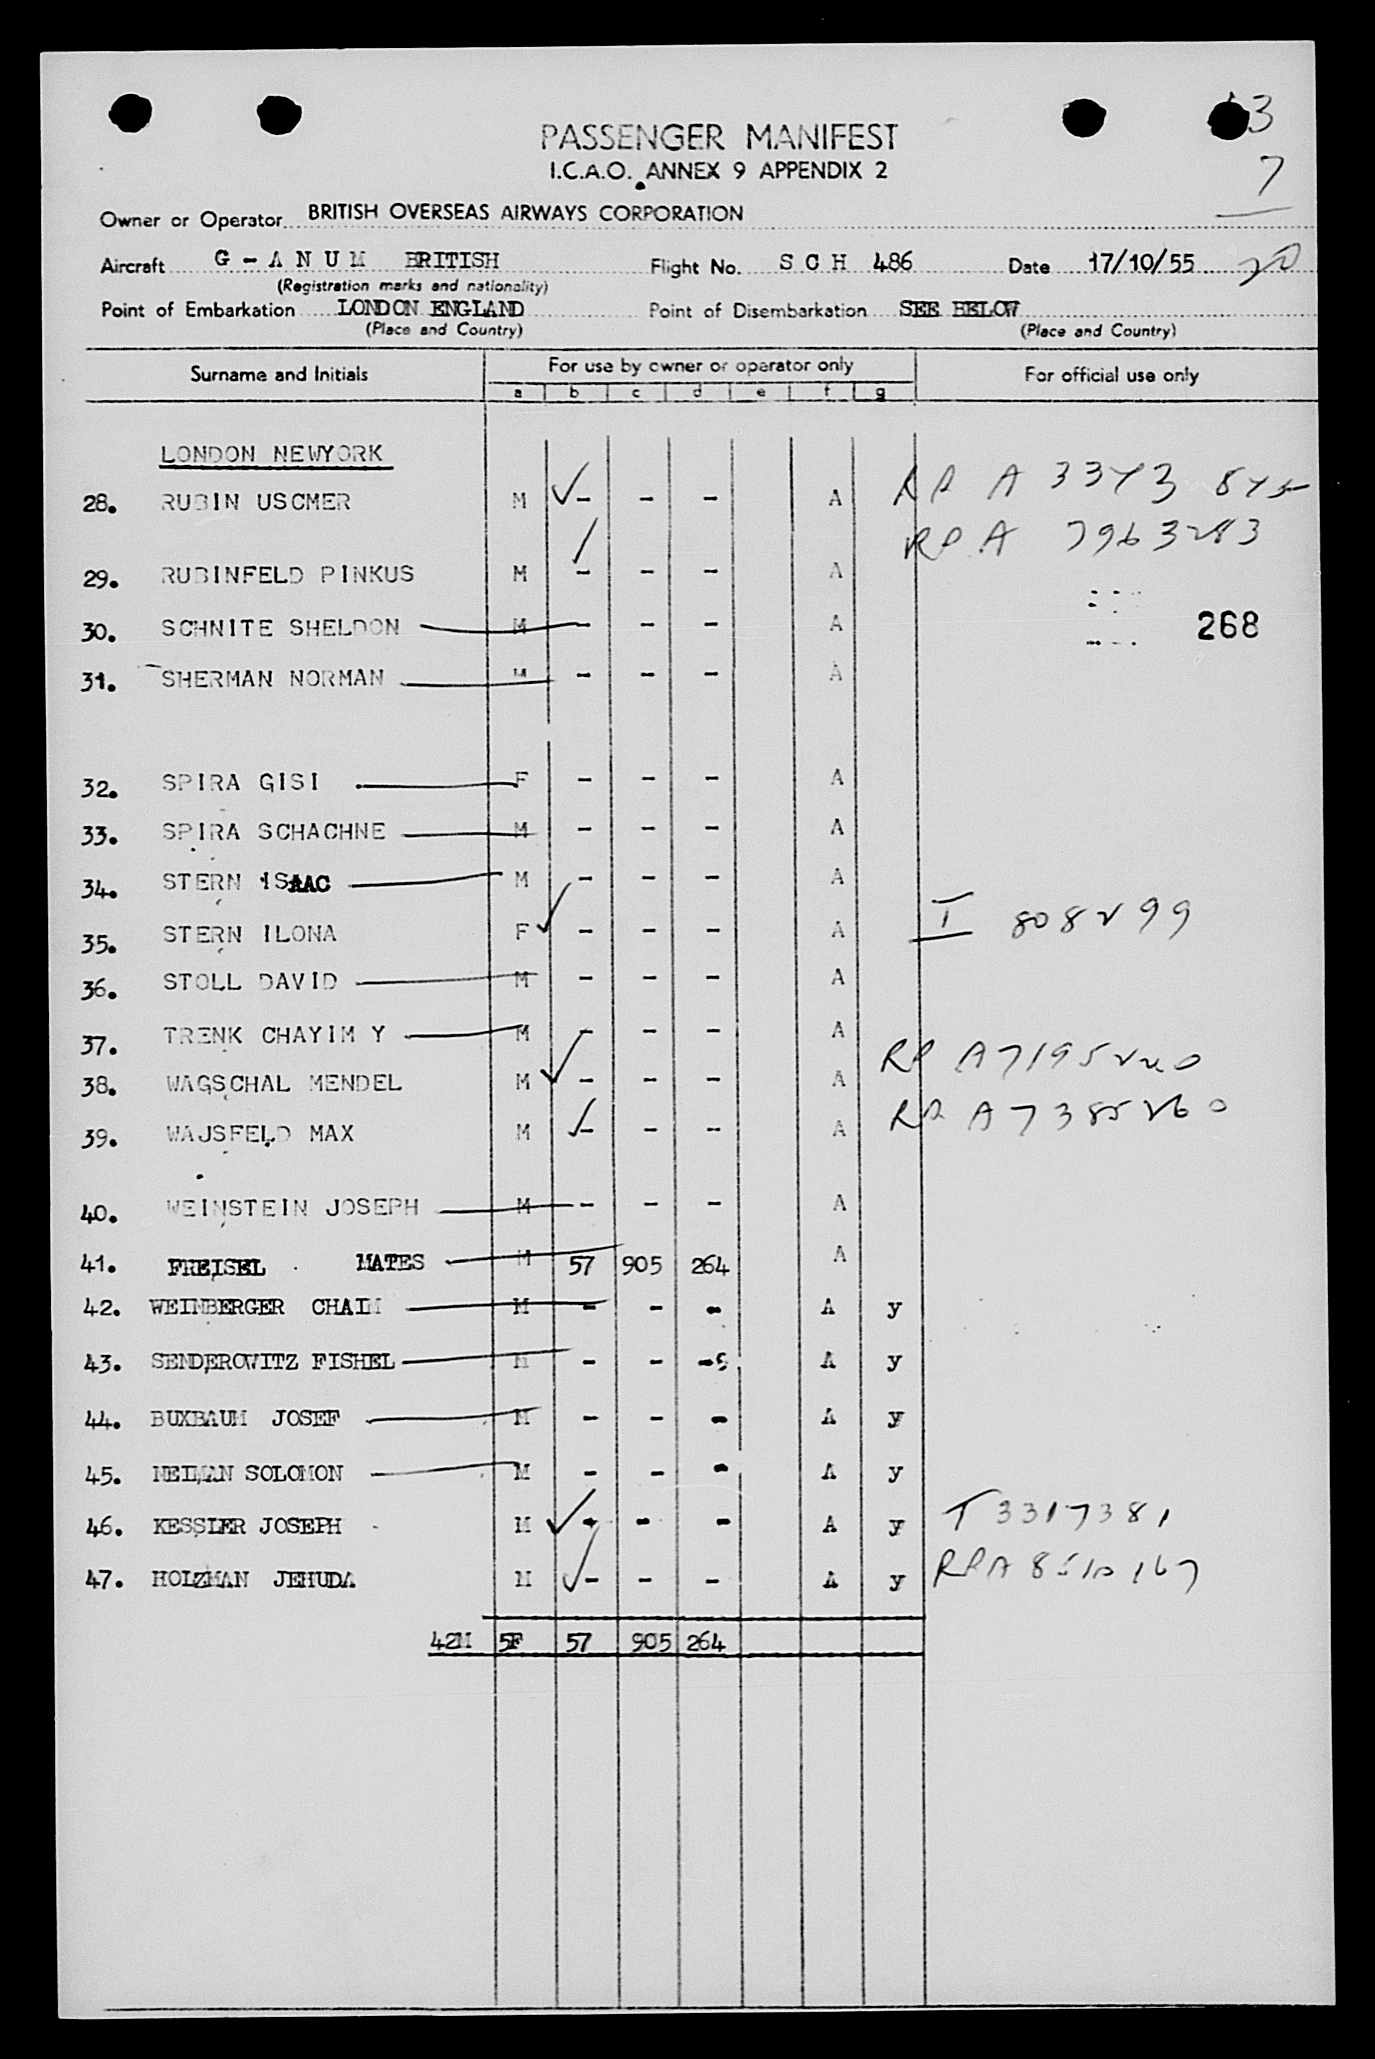 3
PASSENGER MANIFEST
7
I.C.A.O. ANNEX 9 APPENDIX 2
Owner or Operator BRITISH OVERSEAS AIRWAYS CORPORATION
Aircraft G - A N U M BRITISH Flight No. S C H 486 Date 17/10/55 20
(Registration marks and nationality)
Point of Embarkation LONDON ENGLAND Point of Disembarkation SEE BELOW
(Place and Country) (Place and Country)
Surname and Initials For use by owner or operator only For official use only
a b c d e f g
LONDON NEWYORK
28. RUBIN USCMER M - - - A RP A
29. RUBINFELD PINKUS M - - - A RP A 7963283
30. SCHNITE SHELDON M - - - A 268
31. SHERMAN NORMAN M - - - A
32. SPIRA GISI F - - - A
33. SPIRA SCHACHNE M - - - A
34. STERN ISAAC M - - - A
35. STERN ILONA F - - - A T 808299
36. STOLL DAVID M - - - A
37. TRENK CHAYIM Y M - - - A
38. WAGSCHAL MENDEL M - - - A RP
39. WAJSFELD MAX M - - - A RP A7385260
40. WEINSTEIN JOSEPH M - - - A
41. FREISEL MATES M 57 905 264 A
42. WEINBERGER CHAIM M - - - A y
43. SENDEROWITZ FISHEL M - - - A y
44. BUXBAUM JOSEF M - - - A y
45. NEIMAN SOLOMON M - - - A y
46. KESSLER JOSEPH M - - - A y T3317381
47. HOLZMAN JEHUDA M - - - A y RPA 8510167
42M 5F 57 905 264